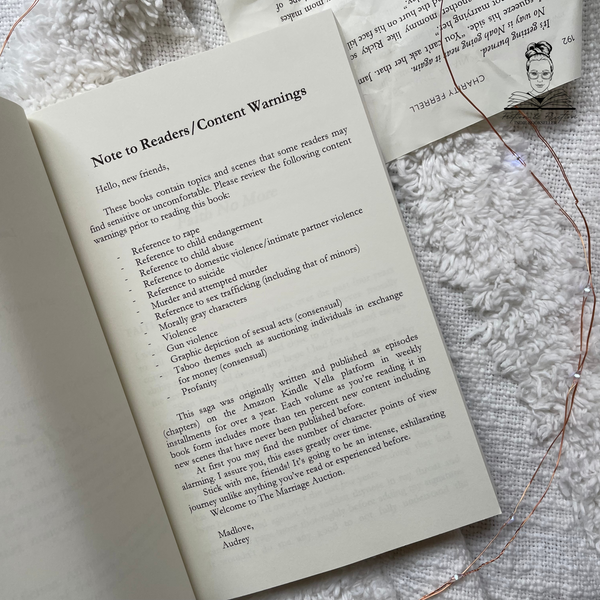 Note to Readers/Content Warnings
Hello, new friends,
These books contain topics and scenes that some readers may
find sensitive or uncomfortable. Please review the following content
warnings prior to reading this book:
- Reference to rape
- Reference to child endangerment
- Reference to child abuse
- Reference to domestic violence/intimate partner violence
- Reference to suicide
- Murder and attempted murder
- Reference to sex trafficking (including that of minors)
- Morally gray characters
- Violence
- Gun violence
- Graphic depiction of sexual acts (consensual)
- Taboo themes such as auctioning individuals in exchange
for money (consensual)
- Profanity
This saga was originally written and published as episodes
(chapters) on the Amazon Kindle Vella platform in weekly
installments for over a year. Each volume as you're reading it in
book form includes more than ten percent new content including
new scenes that have never been published before.
At first you may find the number of character points of view
alarming. I assure you, this eases greatly over time.
Stick with me, friends! It's going to be an intense, exhilarating
journey unlike anything you've read or experienced before.
Welcome to The Marriage Auction.
Madlove,
Audrey
192
CHARITY FERRELL
It's getting burned.
No way is Noah going near it again.
can't ask her that, Jam
marrying her
"You
his side.
mommy
like Ricky
the turn of
most makes